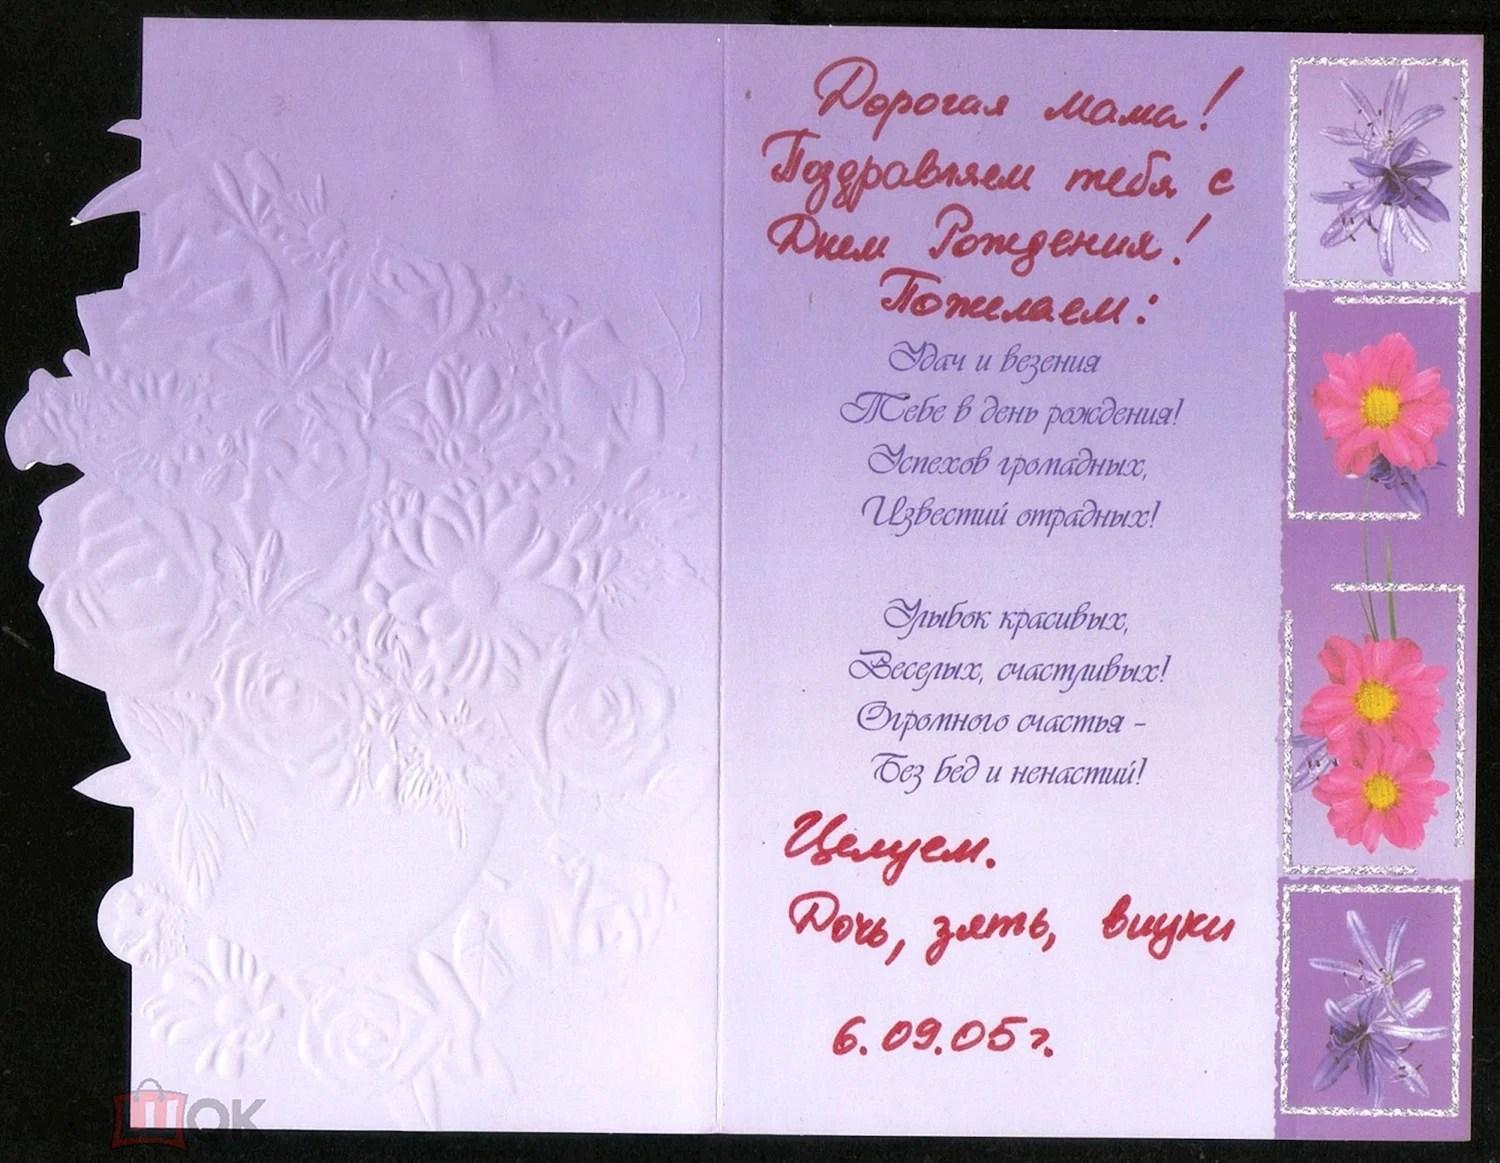 Дорогая мама!
Поздравляем тебя с
Днем Рождения!
Пожелаем:
Удач и везения
Тебе в день рождения!
Успехов громадных,
Известий отрадных!
Улыбок красивых,
Веселых, счастливых!
Огромного счастья –
Без бед и ненастий!
Целуем.
Дочь, зять, внуки
6.09.05г.
мешок